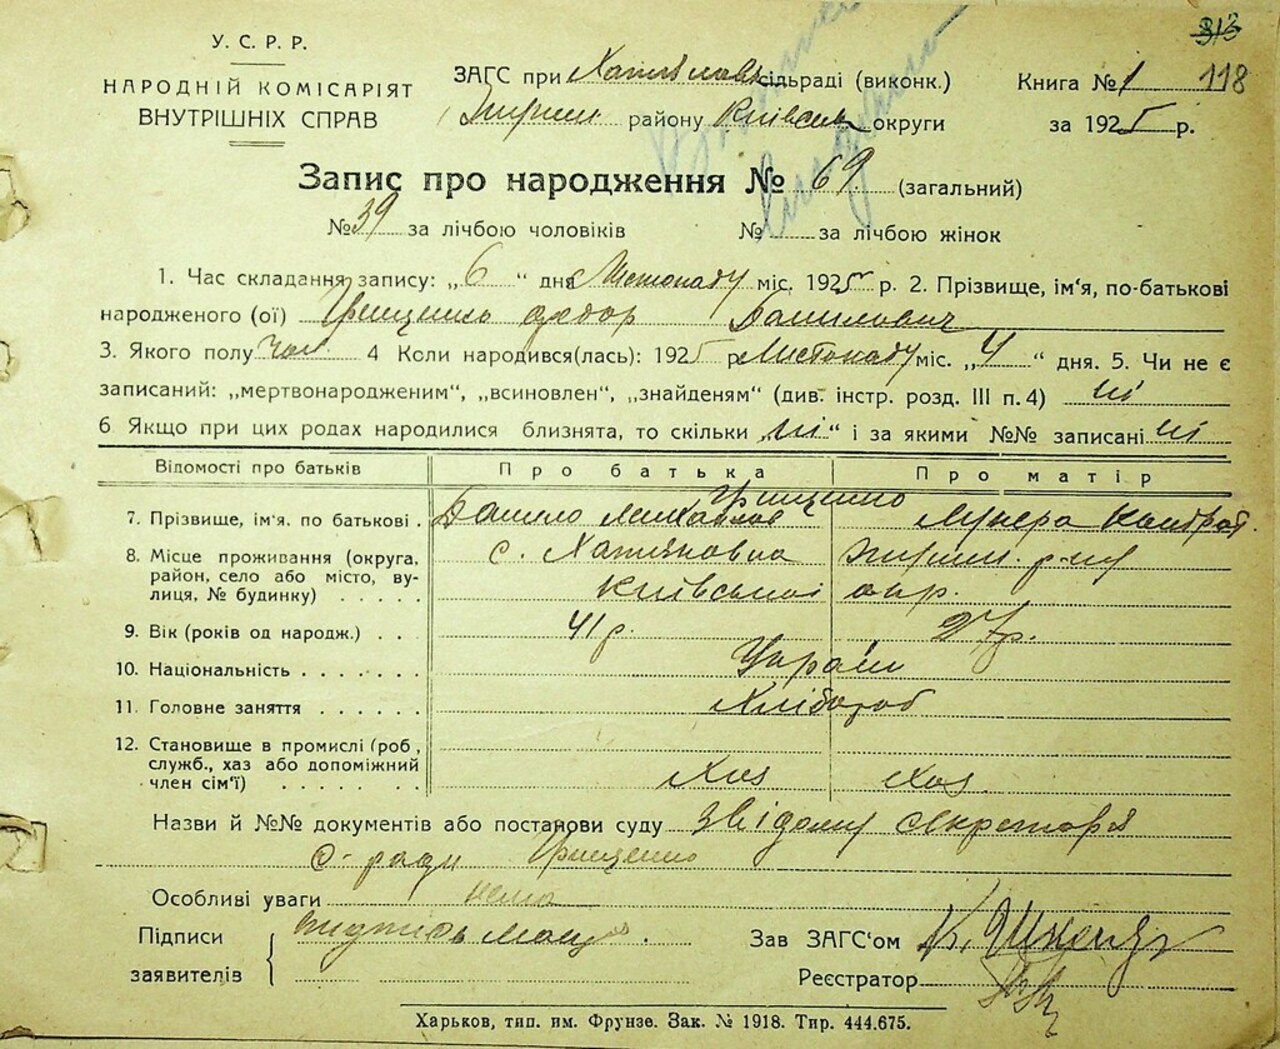 У. С. Р. Р.
НАРОДНІЙ КОМІСАРІЯТ
ВНУТРІШНІХ СПРАВ
313
118
ЗАГС при сільраді (виконк.)
району Київськ округи
Книга № 1
за 1925 р.
Запис про народження № 69 (загальний)
№ 39 за лічбою чоловіків № за лічбою жінок
1. Час складання запису: „6“ дня Листопаду міс. 1925 р. 2. Прізвище, ім'я, по-батькові
народженого (ої) Федор Данилович
3. Якого полу чол. 4 Коли народився(лась): 1925 р Листопаду міс. „4“ дня. 5. Чи не є
записаний: „мертвонародженим“, „всиновлен“, „знайденям“ (див. інстр. розд. III п. 4) ні
6 Якщо при цих родах народилися близнята, то скільки „ні“ і за якими №№ записані ні
Відомості про батьків Про батька Про матір
Грищенко
7. Прізвище, ім'я. по батькові . Данило Михайлов Лукера Кондрат.
8. Місце проживання (округа, с. Хотяновка
район, село або місто, ву-
лиця, № будинку) . . . . . Київської окр.
9. Вік (років од народж.) . . . 41 р. 27 р.
10. Національність . . . . . . . Украін
11. Головне заняття . . . . . . Хлібороб
12. Становище в промислі (роб,
служб., хаз або допоміжний
член сім'ї) . . . . . . . Хаз Хаз.
Назви й №№ документів або постанови суду Звідому секретаря
с-ради Грищенко
Особливі уваги нема
Підписи
заявителів
Зав ЗАГС'ом К.
Реєстратор
Харьков, тип. им. Фрунзе. Зак. № 1918. Тир. 444.675.